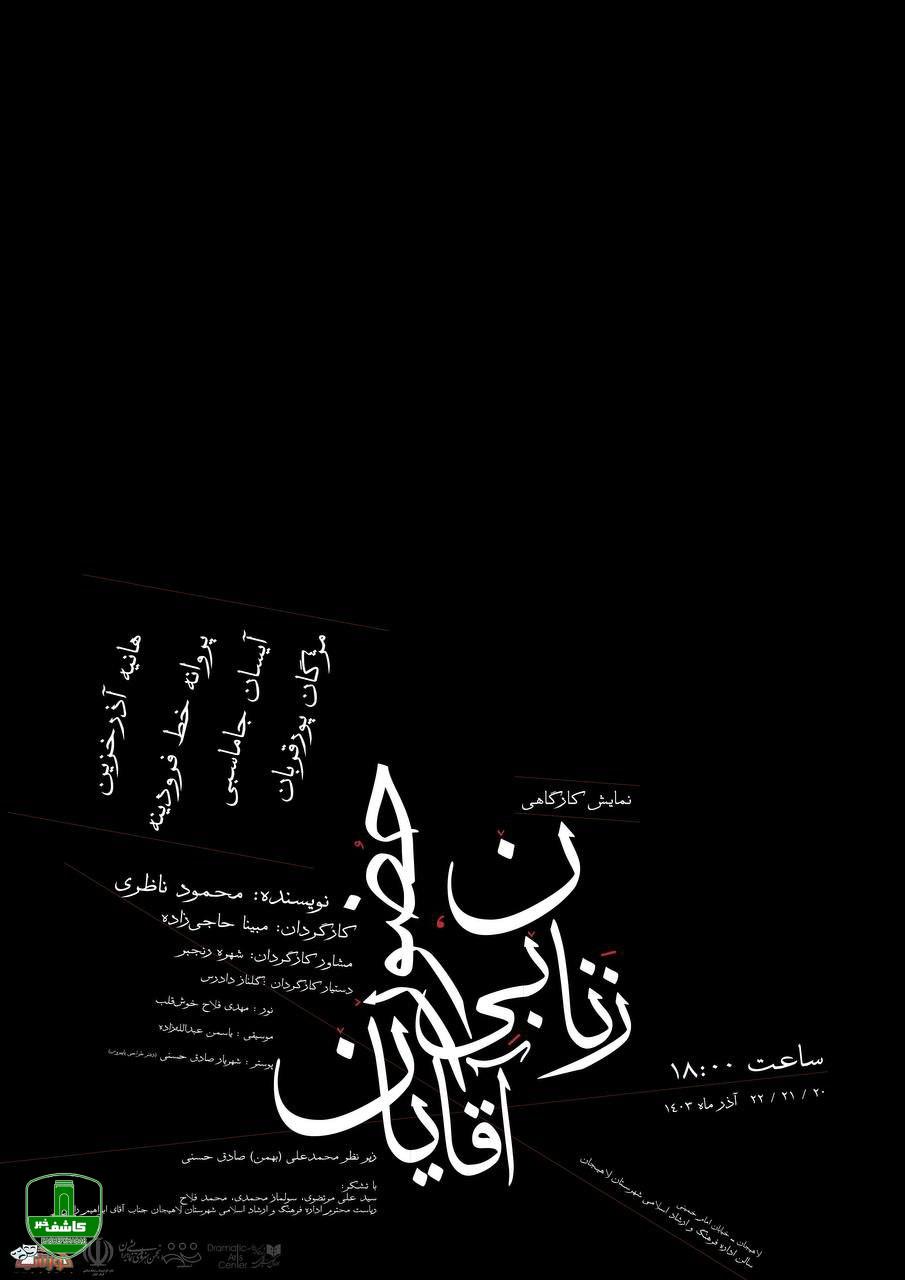 مژگان پورقربان
آیسان جاماسبی
پروانه خط فرودینه
هانیه آذرخزین
نمایش کارگاهی
زنان بی حضور آقایان
نویسنده: محمود ناظری
کارگردان: مبینا حاجی‌زاده
مشاور کارگردان: شهره رنجبر
دستیار کارگردان : گلناز دادرس
نور : مهدی فلاح خوش‌قلب
موسیقی : یاسمن عبدالله‌زاده
پوستر : شهریار صادق حسنی
ساعت ۱۸:۰۰
۲۰ / ۲۱ / ۲۲ آذر ماه ۱۴۰۳
زیر نظر محمدعلی (بهمن) صادق حسنی
با تشکر:
سید علی مرتضوی، سولماز محمدی، محمد فلاح
ریاست محترم اداره فرهنگ و ارشاد اسلامی شهرستان لاهیجان جناب آقای ابراهیم
لاهیجان - خیابان امام خمینی
سالن اداره فرهنگ و ارشاد اسلامی شهرستان لاهیجان
کاشف خبر
Dramatic
Arts
Center